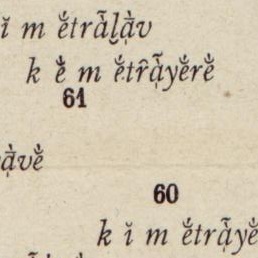 ĭ m ĕ̀trà̭ḽà̭v
k ĕ̀ m ĕ̀tȓà̭yĕ̀rĕ̀
61
à̭vĕ̀
60
k ĭ m ĕ̀trà̭yĕ̀